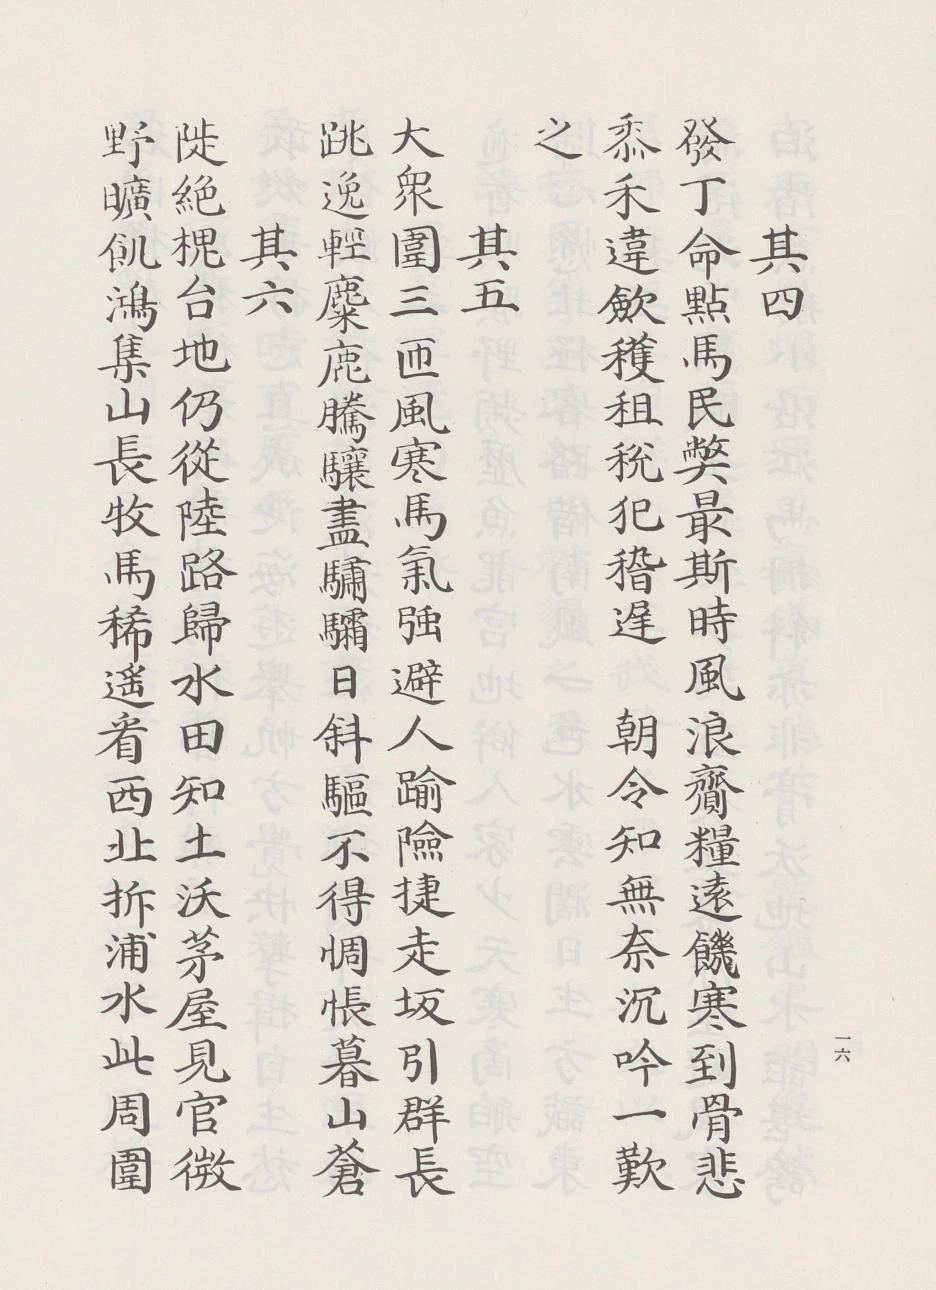 其四
發丁命點馬民弊最斯時風浪齎糧遠饑寒到骨悲
黍禾違斂穫租稅犯稽遲　朝令知無奈沉吟一歎
之
其五
大衆圍三匝風寒馬氣强避人踰險捷走坂引群長
跳逸輕麋鹿騰驤盡驌驦日斜驅不得惆悵暮山蒼
其六
陡絶棍台地仍從陸路歸水田知土沃茅屋見官微
野曠飢鴻集山長牧馬稀遙看西北拆浦水此周圍
一六